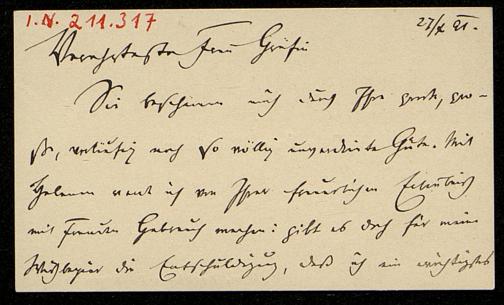 I.N. 211.317
27/X 21.
Verehrteste Frau Gräfin
Sie beschämen mich durch Ihre große, gro-
ße, vorläufig noch so völlig unverdiente Güte. Mit
werd ich von Ihrer freundlichen Erlaubnis
mit Freuden Gebrauch machen: gibt es doch für meine
Wißbegier die Entschuldigung, daß ich ein wichtigstes